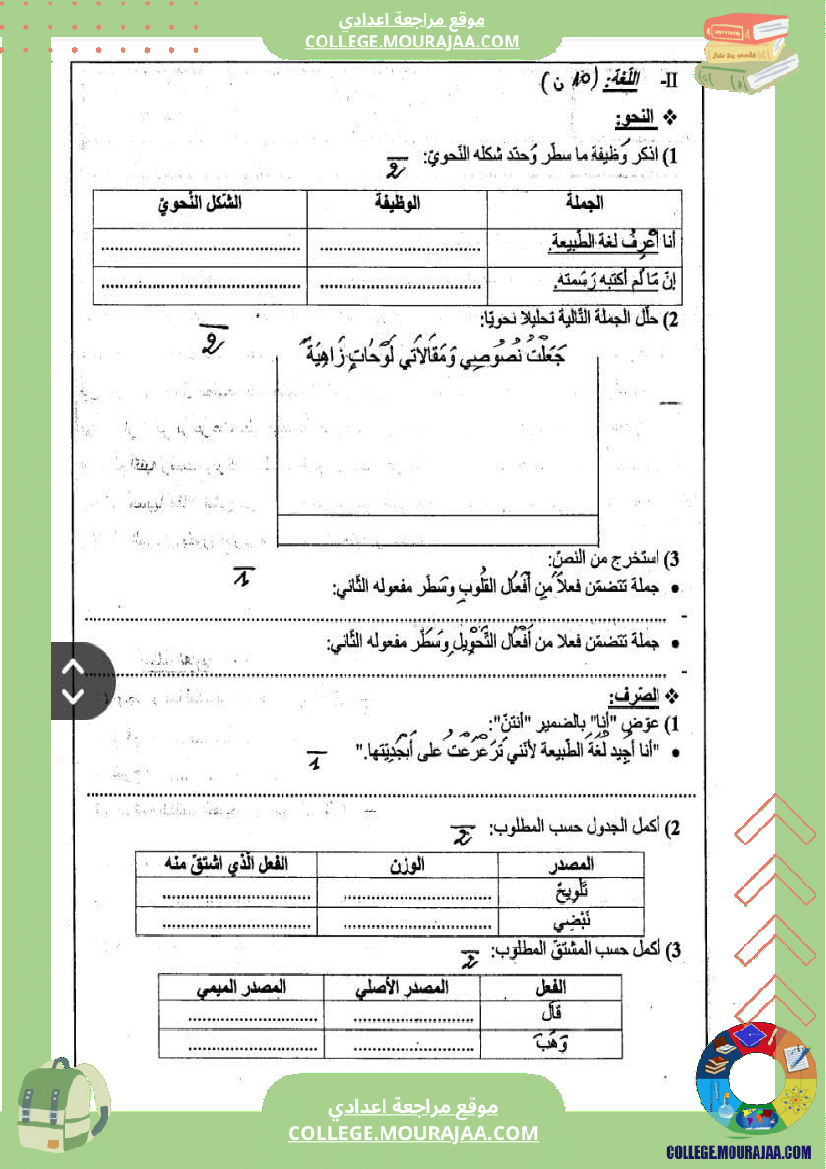 موقع مراجعة اعدادي
COLLEGE.MOURAJAA.COM
II- اللّغة: (10 ن)
❖ النحو:
1) اذكر وظيفة ما سطّر وُحدّد شكله النّحويّ: 2
الجملة الوظيفة الشّكل النّحويّ
أنا أَعْرِفُ لغة الطّبيعة. ........ ........
إنّ مَا لم أكتبه رَسَمته. ........ ........
2) حلّل الجملة التّالية تحليلا نحويّا: 2
جَعَلْتُ نُصُوصِي وَمَقَالاَتي لَوْحَاتٍ زَاهِيَةً
3) استخرج من النصّ: 1
• جملة تتضمّن فعلاً من أَفْعَال القُلُوبِ وسَطّر مفعوله الثّاني:
- ........
• جملة تتضمّن فعلا من أَفْعَال التَّحْوِيل وَسَطِّر مفعوله الثّاني:
- ........
❖ الصّرف:
1) عوّض "أنا" بالضمير "أنتنّ":
• "أنا أُجِيد لُغَةَ الطّبيعة لأنّني تَرَعْرَعْتُ على أَبْجَدِيّتها." 1
........
2) أكمل الجدول حسب المطلوب: 2
المصدر الوزن الفعل الّذي اشتقّ منه
تَلْوِيحٌ ........ ........
نَبْضِي ........ ........
3) أكمل حسب المشتقّ المطلوب: 2
الفعل المصدر الأصلي المصدر الميمي
قَالَ ........ ........
وَهَبَ ........ ........
موقع مراجعة اعدادي
COLLEGE.MOURAJAA.COM
COLLEGE.MOURAJAA.COM